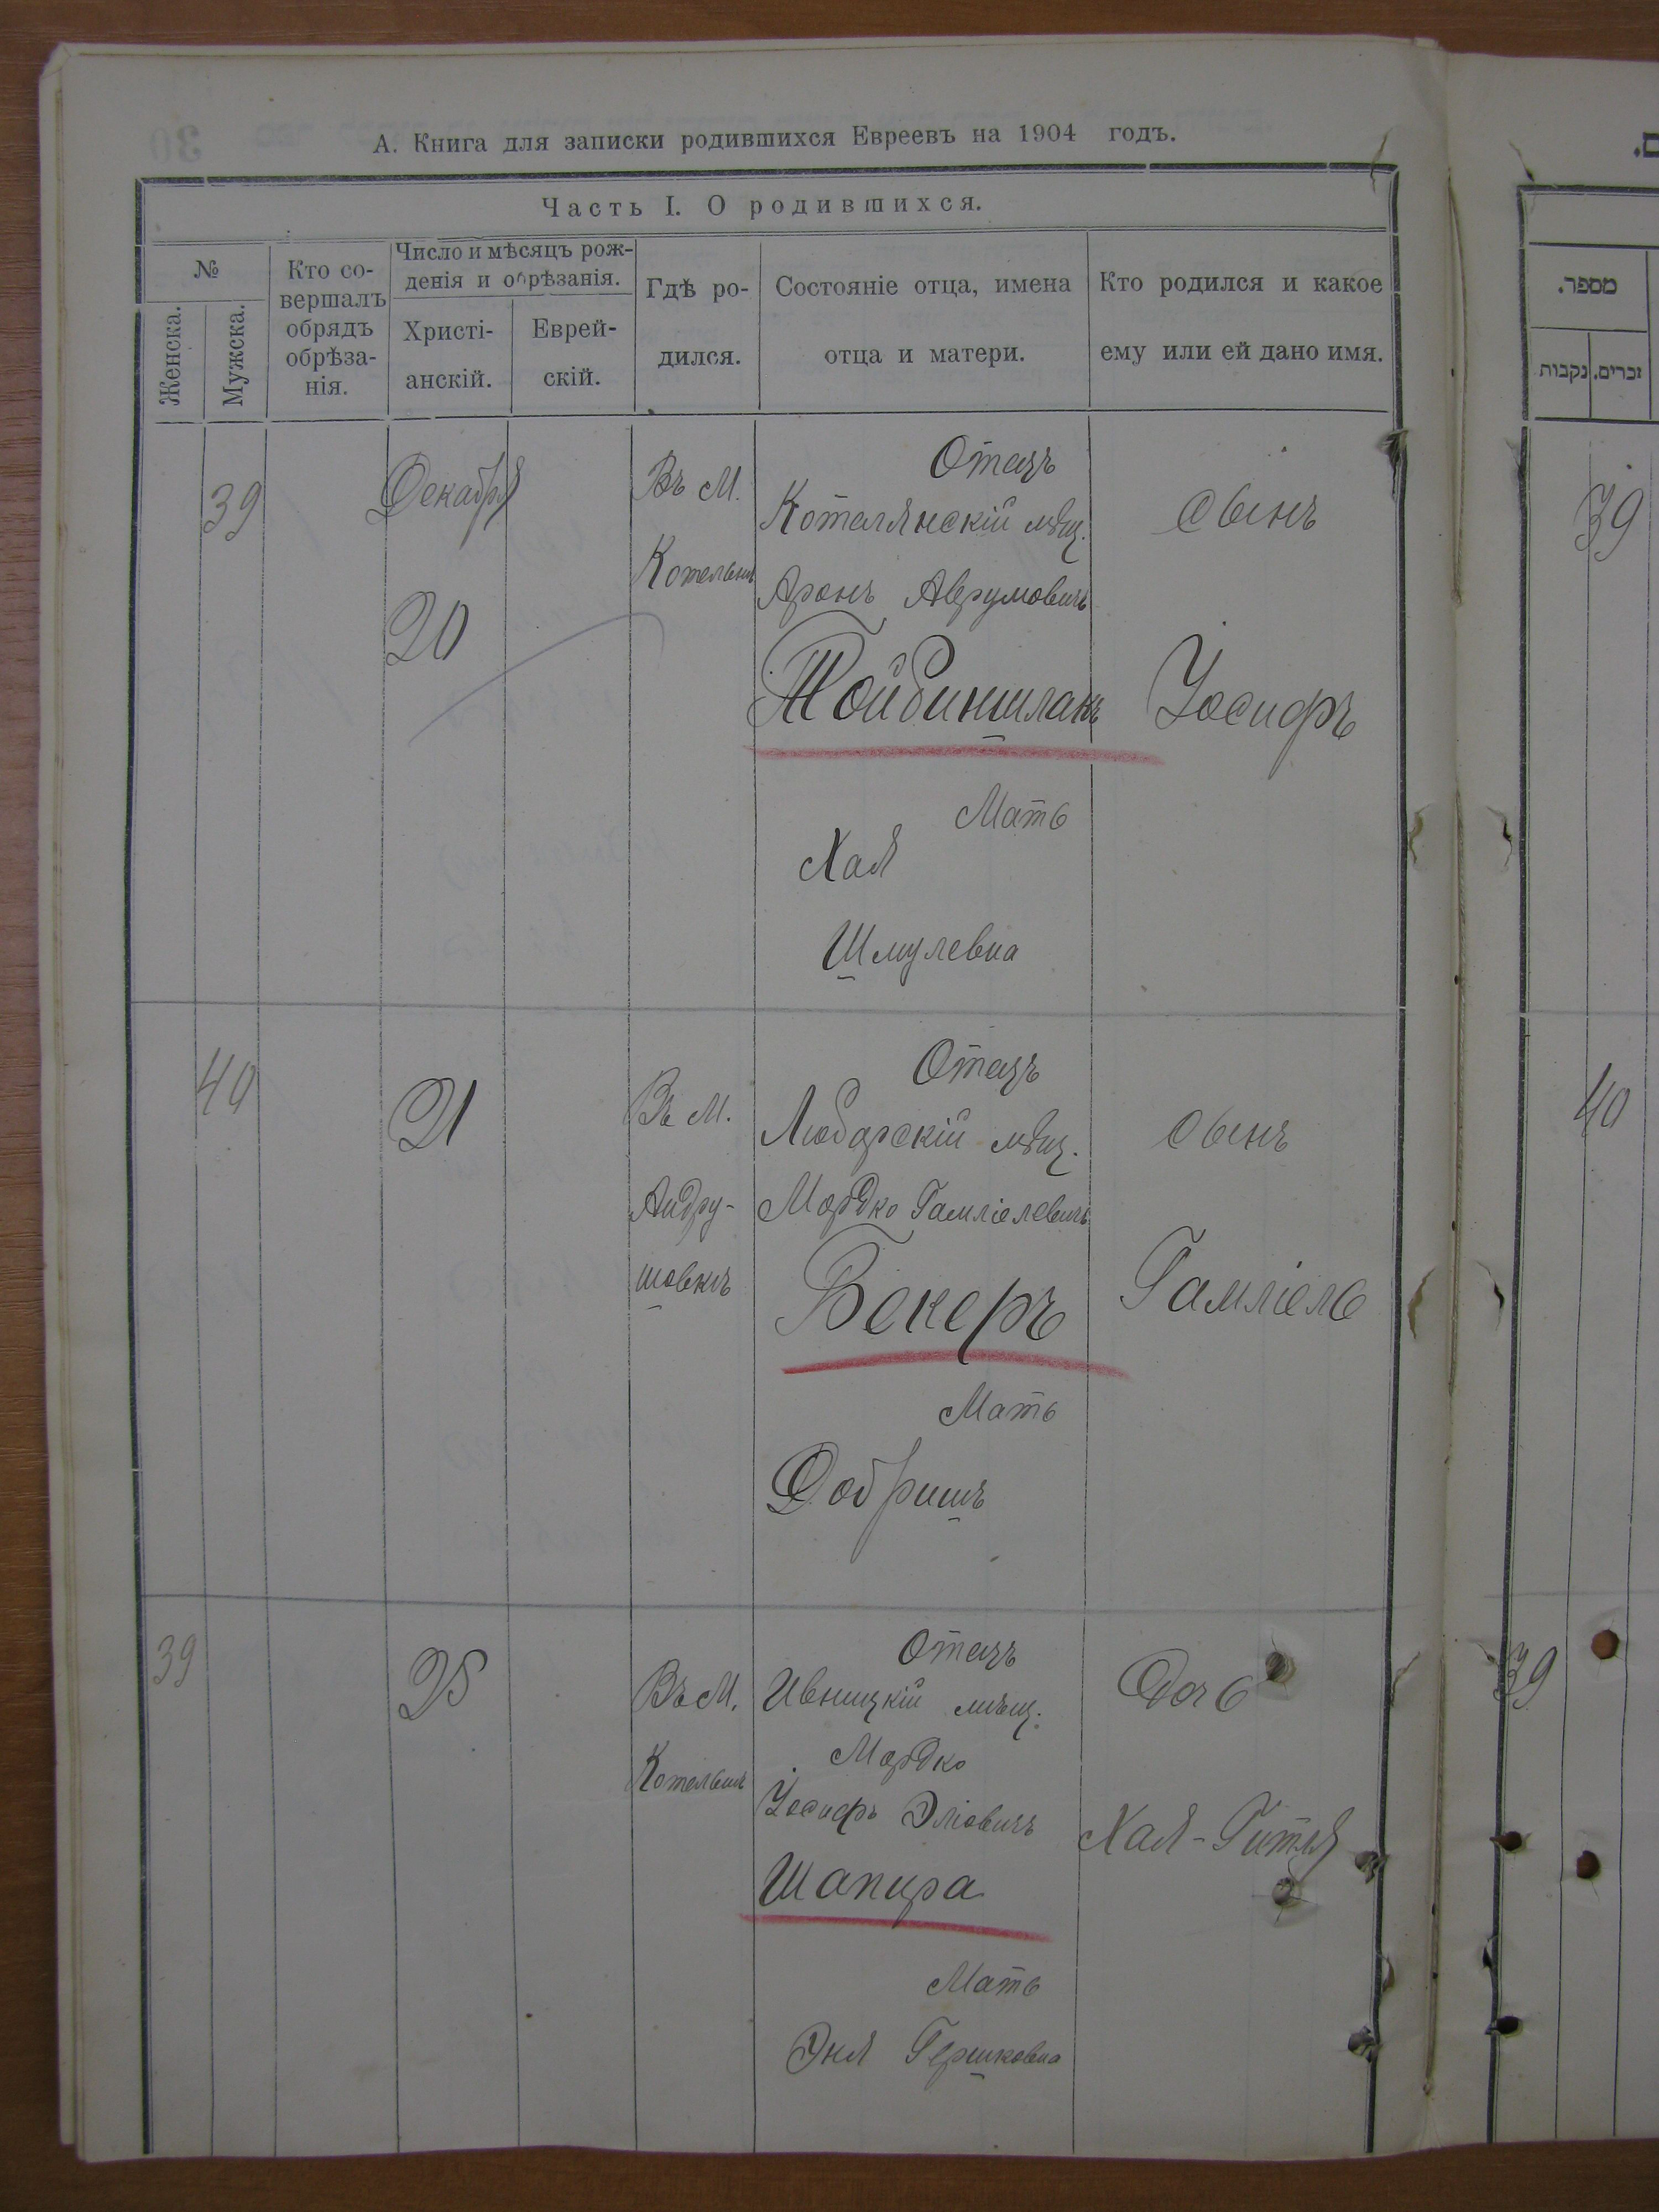 А. Книга для записки родившихся Евреевъ на 1904 годъ.
Часть I. О родившихся.
№
Женска.
Мужска.
Кто со-
вершалъ
обрядъ
обрѣза-
нія.
Число и мѣсяцъ рож-
денія и обрѣзанія.
Христі-
анскій.
Еврей-
скій.
Гдѣ ро-
дился.
Состояніе отца, имена
отца и матери.
Кто родился и какое
ему или ей дано имя.
39
Декабря
20
Въ М.
Котельнѣ
Отецъ
Котелянскій мѣщ.
Аронъ Аврумовичъ
Тойбиншлакъ
Мать
Хая
Шмулевна
сынъ
Іосифъ
40
21
Въ М.
Андру-
шовкѣ
Отецъ
Любарскій мѣщ.
Мордко Гамліелевичъ
Бекеръ
Мать
Добришъ
сынъ
Гамліель
39
25
Въ М.
Котельнѣ
Отецъ
Ивницкій мѣщ.
Мордко
Іосифъ Эліовичъ
Шапира
Мать
Эня Гершковна
Дочь
Хая-Гитля
מספר.
זכרים.
נקבות
39
40
39